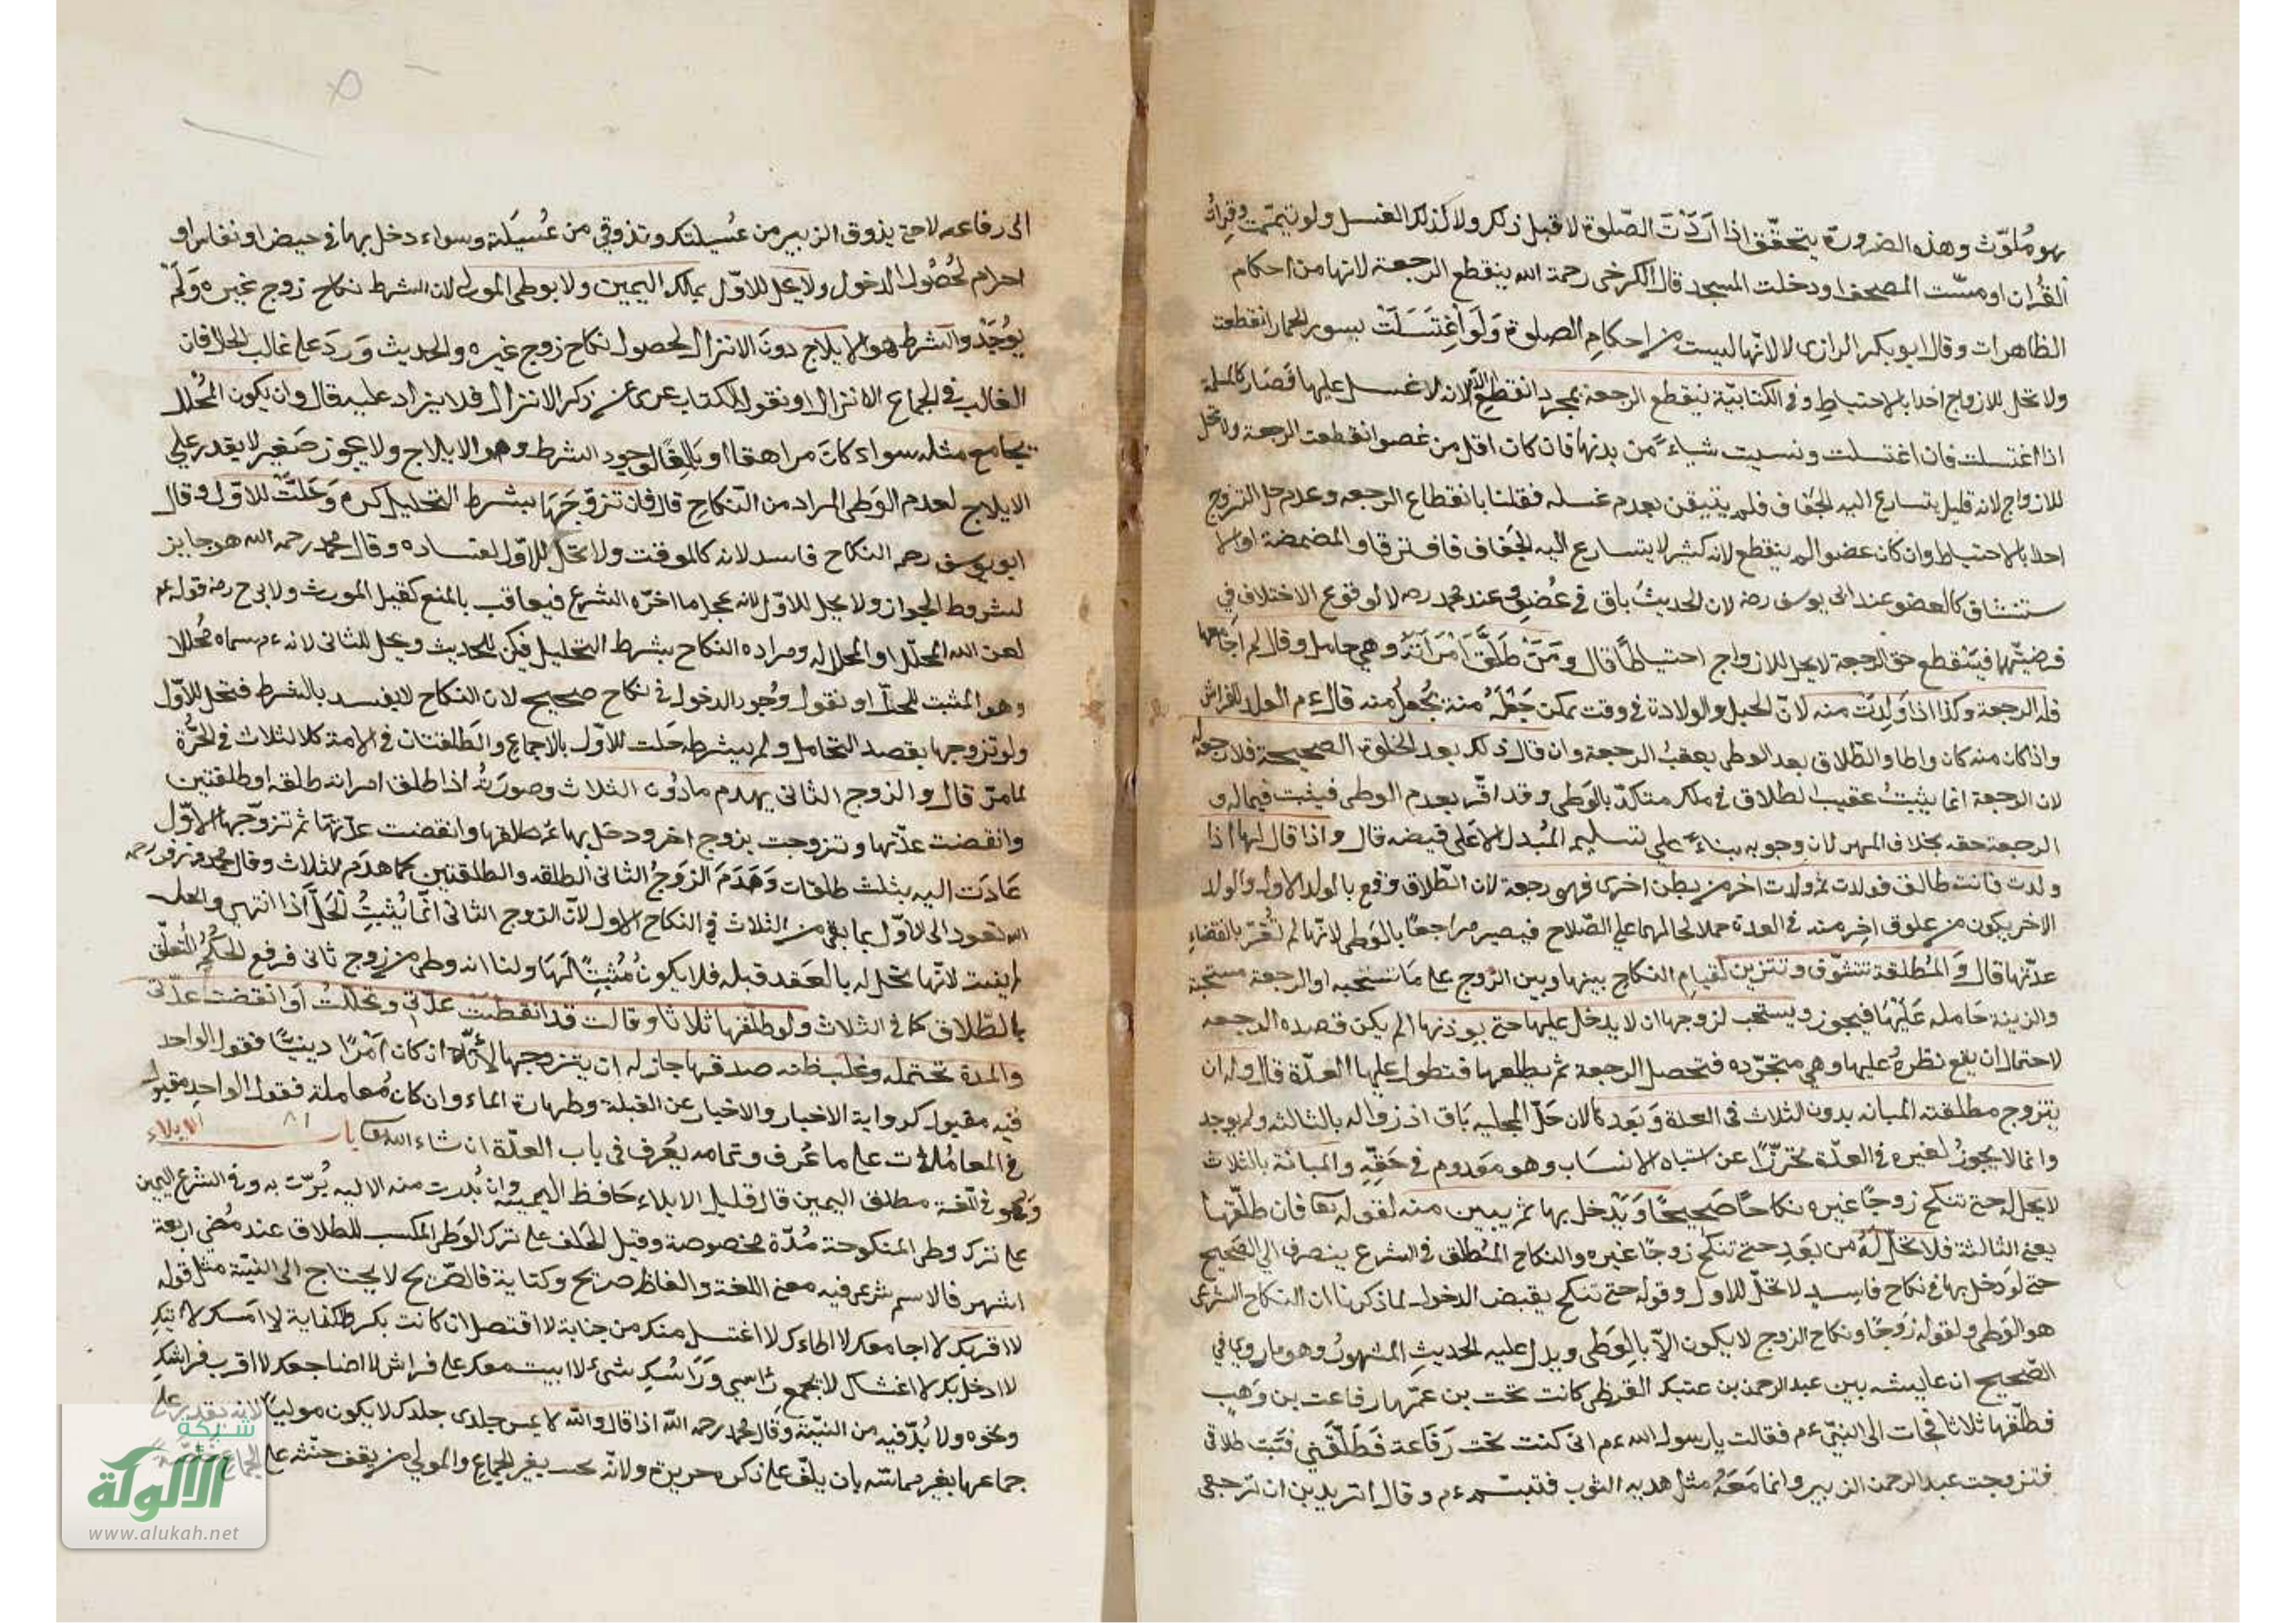 هو مُلوّث وهذه الضرورة يتحقّق اذا اَرَدَتَ الصّلوة لا قبل ذلك ولا كذلك الغسل ولو تيممت وقرات
القُران او مسّت المصحف او دخلت المسجد قال الكرخى رحمة الله ينقطع الرجعة لانها من احكام
الظاهرات وقال ابو بكر الرازى لا لانّها ليست من احكامِ الصلوة وَلَو اغتَسَلَتْ بسور الحمار انقطعت
ولا تحل للازواج اخذا بالاحتياطِ وفى الكتابيّة ينقطع الرجعة بمجرد انقطاع الدم لانه لا غسل عليها فصَار كالمسلمة
اذا اغتسلت فان اغتسلت ونسيت شياءً من بدنها فان كان اقل من عضو انقطعت الرجعة ولا تحل
للازواج لانه قليل يتسارع اليه الجُفاف فلم يتيقن بعدم غسله فقلنا بانقطاع الرجعه وعدم حل التزوج
اخذا بالاحتياط وان كان عضوا لم ينقطع لانه كثير لا يتسارع اليه الجفاف فافترقا والمضمضة اولا
ستنشاق كالعضو عند ابى يوسف رحه لان الحديثُ باق فى عُضوٍ وعند محمد رحه لا لوقوع الاختلاف فى
فرضيّتها فيَنْقطع حق الرجعة لا يحل للازواج احتياطًا قال وَمَنْ طَلَّقَ اَمْرَاَتَهُ وهى حامل وقال لم اَجَامعها
فله الرجعة وكذا اذا وَلِدَت منه لانّ الحبل والولادة فى وقت يمكن جَعْلَهُ منه يُجْعلُ منه قال عم الولد للفراش
واذ كان منه كان واطا والطّلاق بعد الوطى يعقبُ الرجعة وان قال ذلك بعد الخلوة الصحيحة فلا رجعة له
لان الرجعة انما يثبتُ عقيب الطلاق فى ملك متاكدّ بالوَطى وقد اقّر بعدم الوطى فيثبت فيما له و
الرجعة حقه بخلاف المهر لان وجوبه بناءً على تسليم المُبدل لا على قبضه قال واذا قال لها اذا
ولدت فانت طالق فولدت ثم ولدت اخر من بطن اخرى فهى رجعة لان الطّلاق وقع بالولد الاول والولد
الاخر يكون من علوق اخِر منه فى العدة حملا لحالهما على الصّلاح فيصير مراجعًا بالوَطى لانّها لم تُقرّ بانقضاءِ
عدّتها قال وَالمُطلقة تتشوّف وتتزين لقيامِ النكاح بينها وبين الزوج على مَا تستحبه او الرجعة مستحبة
والزينة حَامله عَلَيْهَا فيجوز ويستحب لزوجها ان لا يدخل عليها حتى يوذنها الم يكن قصده الرجعه
لاحتمال ان يقع نظرهُ عليها وهى متجرّده فتحصل الرجعة ثم يطلعها فتطول عليها العدّة قال وله ان
يتزوج مطلقته المبانه بدون الثلاث فى العدة وَبَعدَها لان حَلّ المحليه بَاق اذ زواله بالثالثه ولم يوجد
وانما لا يجوزُ لغيره فى العدّة تحرّزًا عن اشتباه الانسَاب وهو معدوم فى حَقّهِ والمبانة بالثلاث
لا يحل له حتى تنكح زوجًا غيره نكاحًا صَحيحًا وَيَدْخل بها ثم يبين منه لقوله تعا فان طلّقها
يعنى الثالثة فلا تحلّ لهُ من بَعدِ حتى تنكح زوجًا غيره والنكاح المُطلق فى الشرع ينصرف الى الصَحيح
حتى لَو دَخل بها فى نكاح فاسِد لا تحلّ للاول وقوله حتى تنكح يقبض الدخول لما ذكرنا ان النكاح الشرعى
هو الوَطى ولقوله زَوجًا ونكاح الزوج لا يكون الاّ بالوَطى ويدل عليه الحديثِ المشهورُ وهو ما روى فى
الصّحيح ان عايشه بين عبد الرحمن بن عتيك القرظى كانت تحت بن عمّها رفاعت بن وَهيب
فطلّقها ثلاثا فجات الى النبىّ عم فقالت يا رسول الله عم انى كنت تحت رَفاعة فَطَلّقَنى فَبَتت طلاقى
فتزوجت عبد الرحمن الزبير وانما مَعَهُ مثل هدبه الثوب فتبسّم عم وقال اتريدين ان ترجعى
الى رفاعه لا حتى يذوق الزبير من عُسيلتك وتذوقى من عُسيَلته وسواء دخل بها فى حيض او نفاس او
احرام لحُصُول الدخول ولا يحل للاوّل بملك اليمين ولا بوطى المولى لان الشرط نكاح زوج غيره وَلَمْ
يُوجَدْ والشرط هو الايلاج دونَ الانزال لحصول نكاح زوج غيره والحديث وَردَ على غالب الحال فان
الغالب فى الجماع الانزال او نقول الكتاب عرى عن ذكر الانزال فلا يزاد عليه قال وان يكون المُحلل
يجامع مثله سواء كانَ مراهقا او بَالغًا لوجود الشرط وهو الايلاج ولا يجوز صَغير لا يقدر على
الايلاج لعدم الوَطى المراد من النّكاحِ قال فان تزوّجَهَا بشرط التحليل كره وَحَلّت للاوّل وقال
ابو يوسف رحه النكاح فاسد لانه كالموقت ولا تحلّ للاوّل لفساده وقال محمد رحمه الله هو جايز
لشروط الجواز ولا يحل للاوّل لانه عجل ما اخرّه الشرع فيعاقب بالمنع كقيل المورث ولابى ح رضه قوله عم
لعن الله المحلّل والمحلل له ومراده النكاح بشرط التحليل فيكن للحديث ويحل للثانى لانه عم سماه مُحللا
وهو المثبت للحلّ او نقول وُجود الدخول فى نكاح صحيح لان النكاح لا يفسد بالشرط فتحل للاوّل
ولو تزوجها بقصد التحامل ولم يشرطه حَلت للاوّل بالاجماع والطّلقتان فى الامة كالثلاث فى الحُرَّة
لما مرّ قال والزوج الثانى يهدم ما دُون الثلاث وصورَتهُ اذا طلق امراته طلقه او طلقتين
وانقضت عدّتها وتزوجت بزوج اخر ودخل بها ثم طلقها وانقضت عدّتها ثم تزوّجها الاوّل
عَادَت اليه بثلث طلقات وَهَدَمَ الزَوجُ الثانى الطلقه والطلقتين كما هدَم الثلاث وقال محمد وزفر رحمه
الله تعود الى الاوّل بما بقى من الثلاث فى النكاح الاول لانّ الزوج الثانى انّما يُثبتُ الحَلّ اذا انتهى والحل
لم يفت لانّها تحل له بالعَقد قبله فلا يكونُ مُثبتًا لَهَا ولنا انه وطى من زوج ثانى فرفع الحُكُمُ المتعلّق
بالطّلاق كما فى الثلاث ولو طلّقها ثلاثا وقالت قد انقضت عدّتى وتحللتُ او انقضت عدّتى
والمدة تحتمله وغلب ظنه صدقها جاز له ان يتزوجها لانّه ان كان اَمْرًا دينيّا فقول الواحد
فيه مقبول كرواية الاخبار والاخبار عن القبلة وطهارة الماء وان كان مُعاملة فقول الواحد مقبول
فى المعاملات على ما عُرف وتمامه يُعرف فى باب العدّة ان شاء الله تعا باب الايلاء
وَهُو فى اللّغة مطلق اليمين قال قليل الايلاء حَافظ اليمينه وان بُدرت منه الاليه بُرّت به وفى الشرع اليمين
على ترك وطى المنكوحة مُدّة مخصوصة وقيل الحَلف على ترك الوَطى المكسب للطلاق عند مُضى اربعة
اشهر فالاسم شرعى فيه معنى اللغة والفاظه صريح وكناية فالصّريح لا يحتاج الى النيّة مثل قوله
لا اقربك لا اجامعك لا اطاءك لا اغتسل منك من جنابة لا اقتصل ان كانت بكر والكناية لا امسك لا اتيك
لا ادخل بك لا اغشاك لا يجمع رَاسى وَرَاسُكِ شىء لا ابيت معك على فراش لا اضاجعك لا اقرب فراشك
ونحوه ولا بُدّ فيه من النيّة وقال محمد رحمه الله اذا قال والله لا يمس جلدى جلدك لا يكون موليّا لانه يقدر على
جماعها بغير مماسّة بان يلفّ على ذكره حريرة ولانّه يحنث بغير الجماع والمولى من يقف حنثه على الجماع
شبكة
الألوكة
www.alukah.net